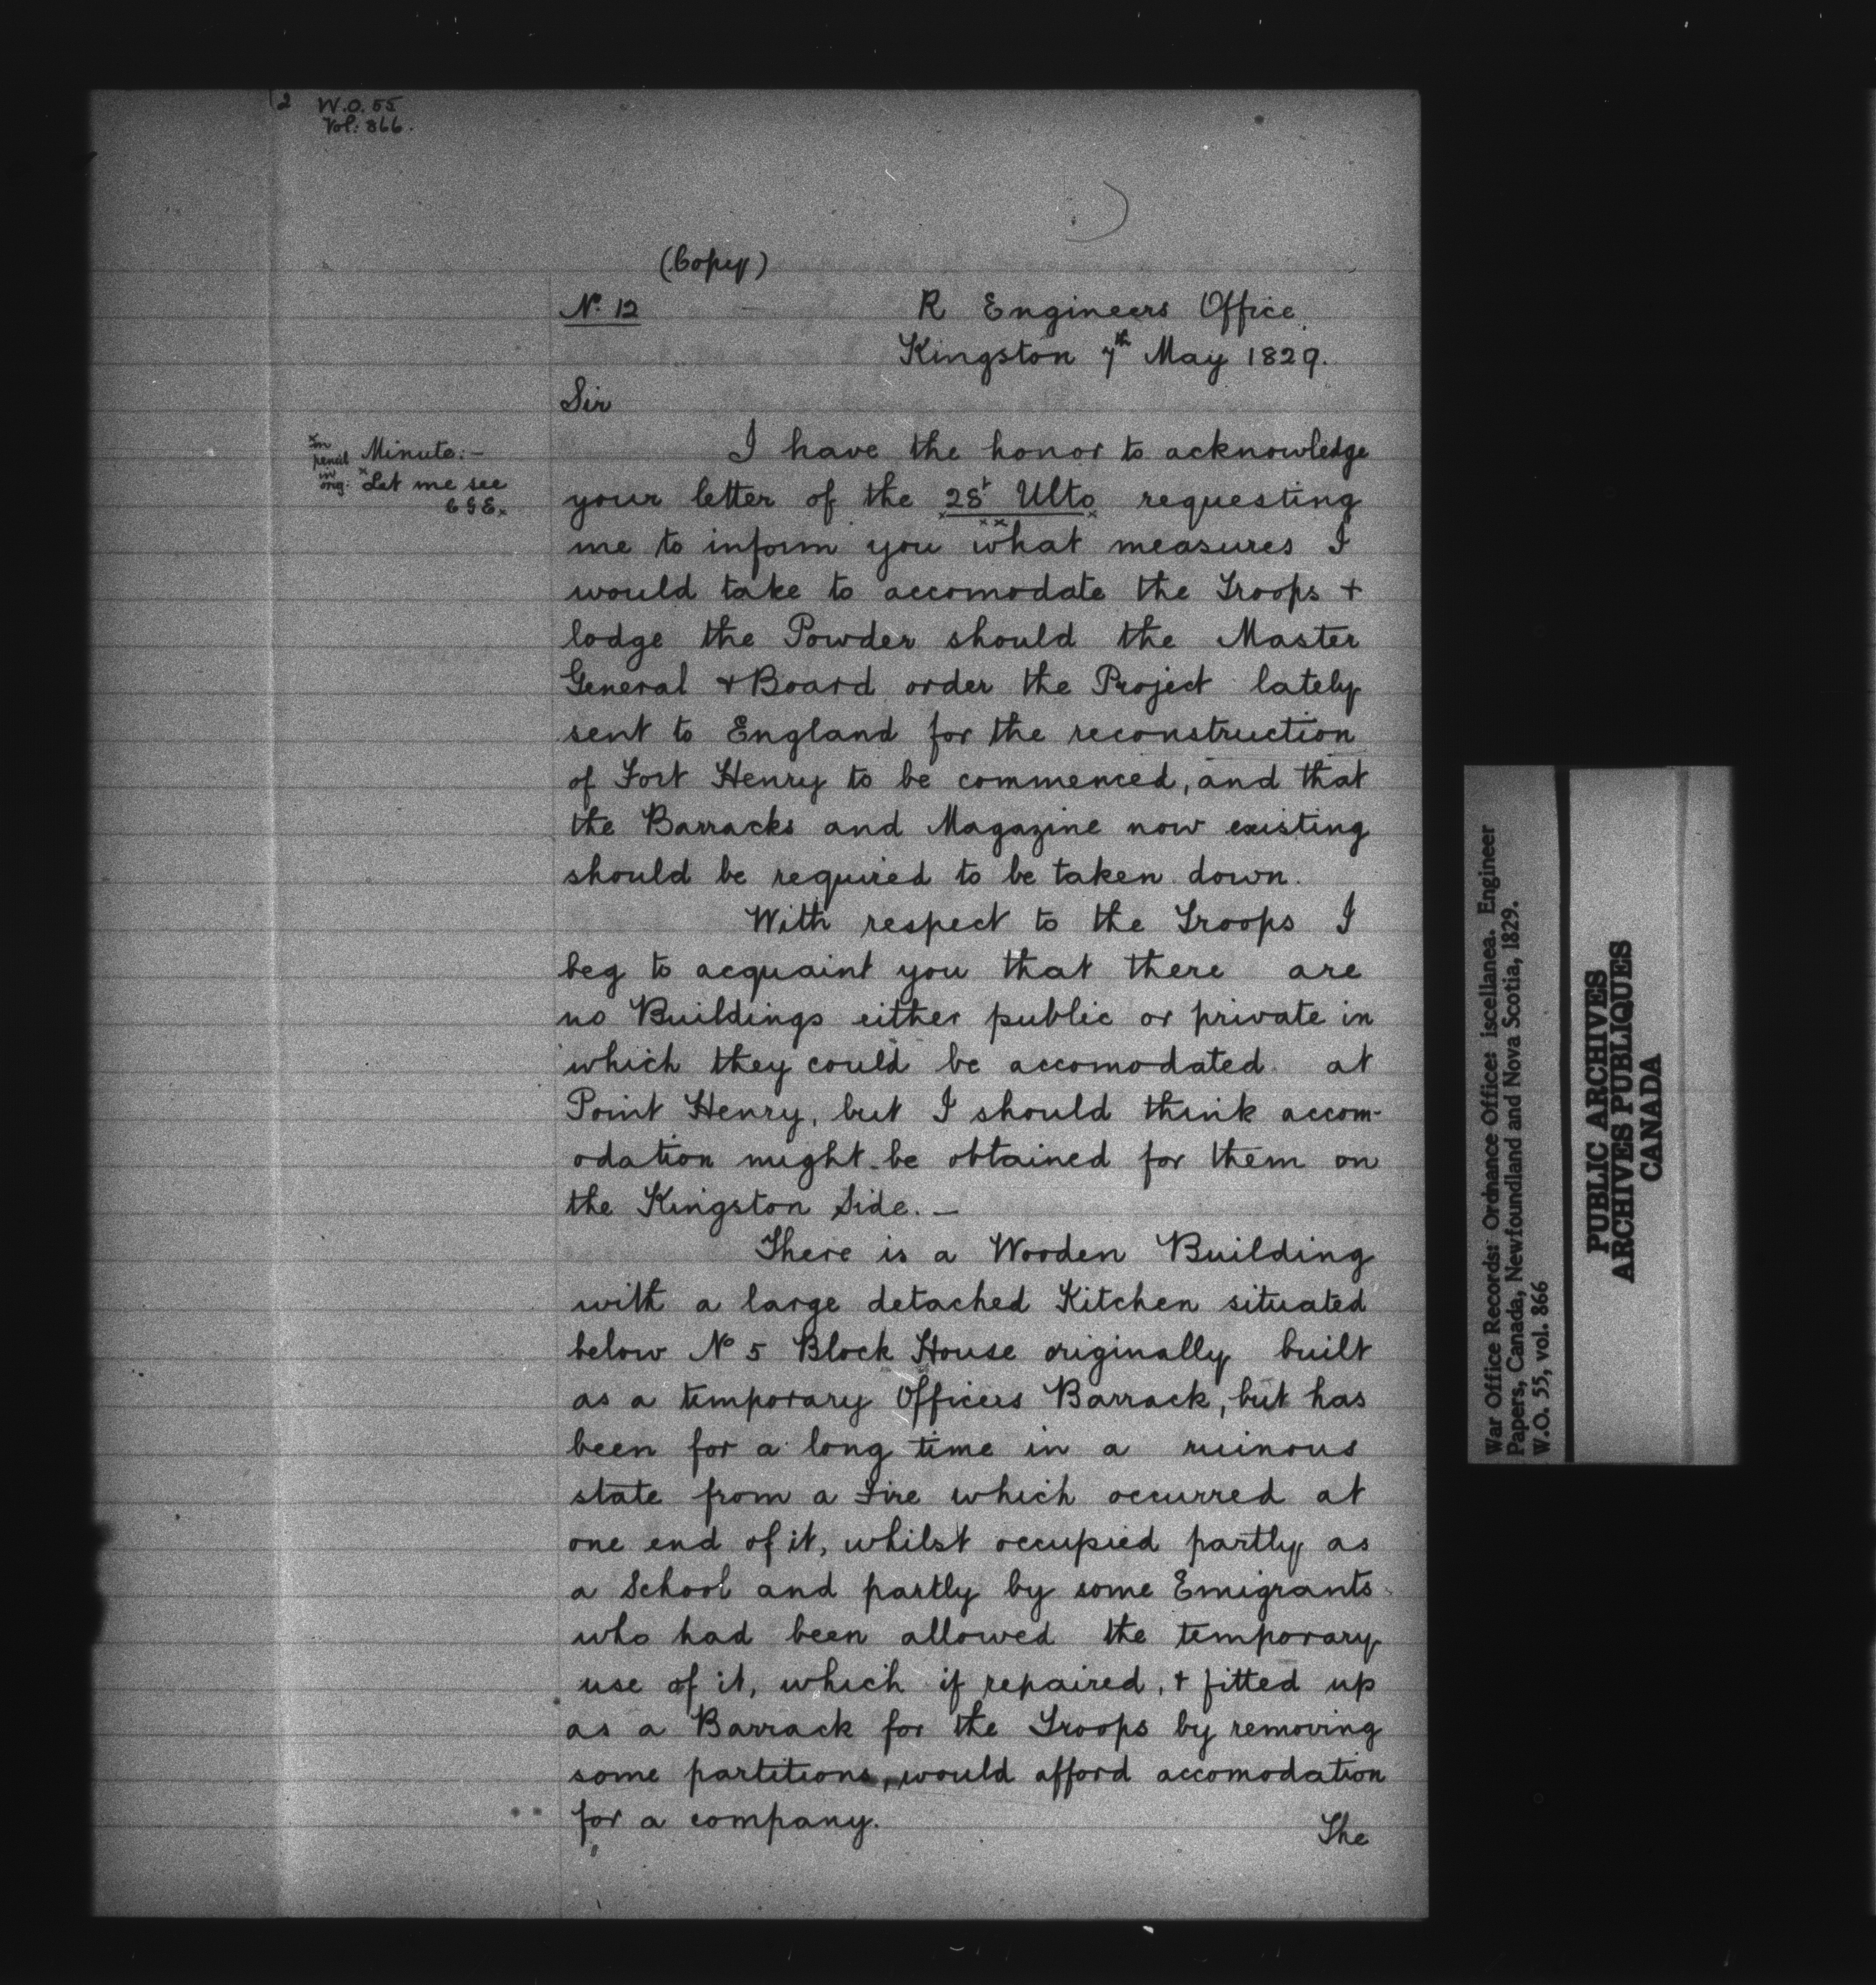 2 W.O. 55
Vol: 866.
(Copy)
No. 12
R Engineers Office
Kingston 7th May 1829.
Sir
x In pencil in orig.
Minute:-
x Let me see
I have the honor to acknowledge
your letter of the 28t Ulto requesting
me to inform you what measures I
would take to accomodate the Troops +
lodge the Powder should the Master
General + Board order the Project lately
sent to England for the reconstruction
of Fort Henry to be commenced, and that
the Barracks and Magazine now existing
should be required to be taken down.
With respect to the Troops I
beg to acquaint you that there are
no Buildings either public or private in
which they could be accomodated at
Point Henry, but I should think accom-
odation might be obtained for them on
the Kingston Side. —
There is a Wooden Building
with a large detached Kitchen situated
below No 5 Block House originally built
as a temporary Officers Barrack, but has
been for a long time in a ruinous
state from a Fire which occurred at
one end of it, whilst occupied partly as
a School and partly by some Emigrants
who had been allowed the temporary
use of it, which if repaired, + fitted up
as a Barrack for the Troops by removing
some partitions, would afford accomodation
for a company.
The
War Office Records: Ordnance Office: iscellanea. Engineer
Papers, Canada, Newfoundland and Nova Scotia, 1829.
W.O. 55, vol. 866
PUBLIC ARCHIVES
ARCHIVES PUBLIQUES
CANADA